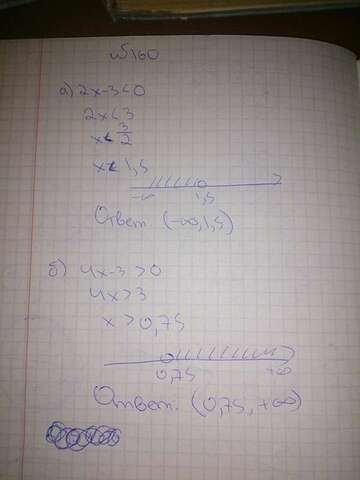 №160
а) 2x-3<0
2x<3
x<3/2
x<1,5
-∞ 1,5
Ответ (-∞,1,5)
б) 4x-3>0
4x>3
x>0,75
0,75 +∞
Ответ: (0,75,+∞)